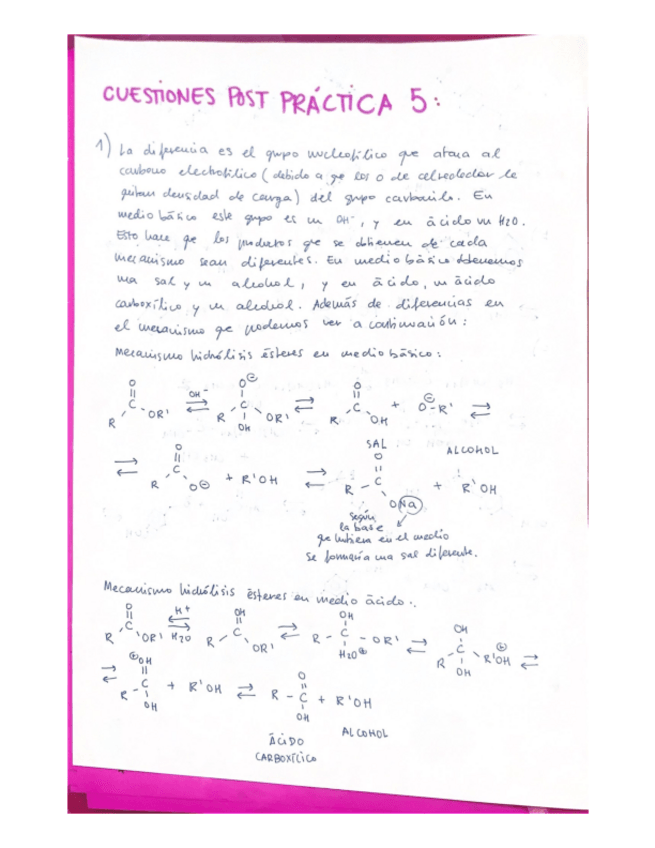 CUESTIONES POST PRÁCTICA 5:
1) La diferencia es el grupo nucleofílico que ataca al
carbono electrofílico (debido a qe los O de alrededor le
quitan densidad de carga) del grupo carbonilo. En
medio básico este grupo es un OH⁻, y en ácido un H2O.
Esto hace qe los productos qe se obtienen de cada
mecanismo sean diferentes. En medio básico obtenemos
una sal y un alcohol, y en ácido, un ácido
carboxílico y un alcohol. Además de diferencias en
el mecanismo qe podemos ver a continuación:
Mecanismo hidrólisis ésteres en medio básico:
O O⊖ O
R C OR' ⇌ OH⁻ R C OR' OH ⇌ R C OH + O⊖-R' ⇌
SAL ALCOHOL
⇌ R C O O⊖ + R'OH ⇌ R - C O ONa + R'OH
según
la base
qe hubiera en el medio
se formaría una sal diferente.
Mecanismo hidrólisis ésteres en medio ácido:
R C O OR' ⇌ H+ H2O R C OH OR' ⇌ R - C - OR' OH H2O⊕ ⇌ R C OH OH R'OH ⊕ ⇌
⇌ R - C ⊕OH OH + R'OH ⇌ R - C O OH + R'OH
ÁCIDO ALCOHOL
CARBOXÍLICO